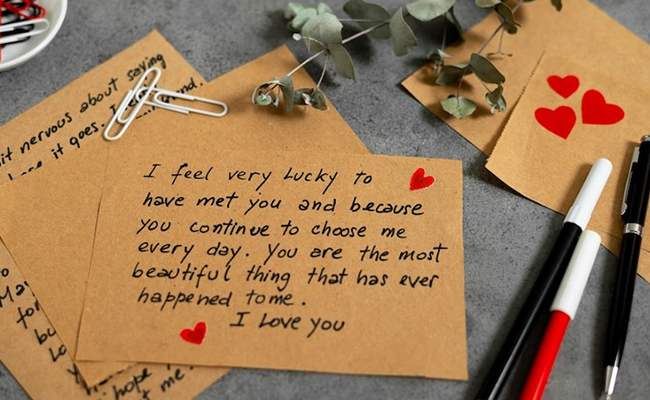 it nervous about saying
it goes.
I feel very Lucky to
have met you and because
you continue to choose me
every day. You are the most
beautiful thing that has ever
happened to me.
I Love you
to
for
hope
t me.